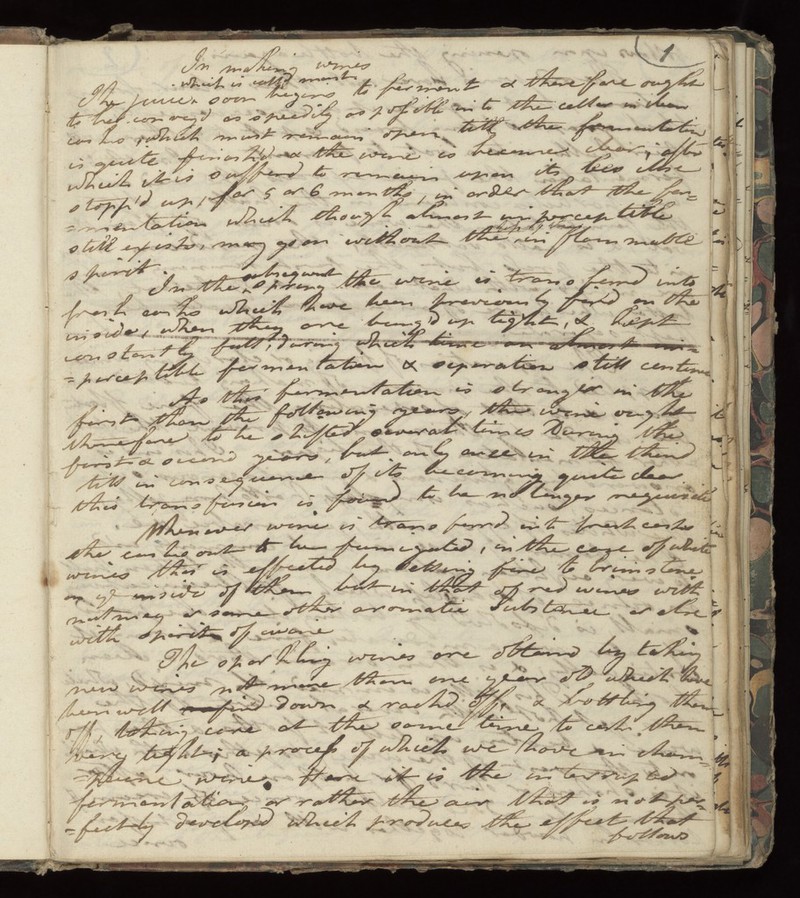 1
In making wines
which is call'd must
The juice soon begins to ferment & therefore ought
to be convey'd as speedily as possible into the cellar in clean
casks, which must remain open till the fermentation
is quite finish'd & the wine is become clear; after
which it is sufferd to remain upon its lees close
stopp'd up, for 5 or 6 months, in order that the fer=
=mentation which though almost imperceptible
still exists, may go on without the inflammable
spirit
In the subsequent spring the wine is transferrd into
fresh casks which have been previously fir'd on the
inside, when they are bung'd up tight, & kept
constantly full, during which time an almost im=
=perceptible fermentation & seperation still continue
As this fermentation is stronger in the
first than the following years, the wine ought
therefore to be shifted several times During the
first & second years, but only once in the third
till in consequence of its becoming quite clear
this transfusion is found to be no longer requisite
Whenever wine is transferrd into fresh casks
the casks out to be fumigated, in the case of white
wines this is effected by setting fire to brimstone
on ye inside of them but in that of red wines with
nutmeg or some other aromatic Substance or else
with spirits of wine
The sparkling wines are obtaind by taking
new wines not more than one year old which have
been well fin'd down & rack'd off, & bottling them
off, taking care at the same time to cork them
very tight; a process of which we have in cham=
=paine wine. Here it is the interrupted
fermentation, or rather the air that is not per=
=fectly develop'd which produces the effect that
follows